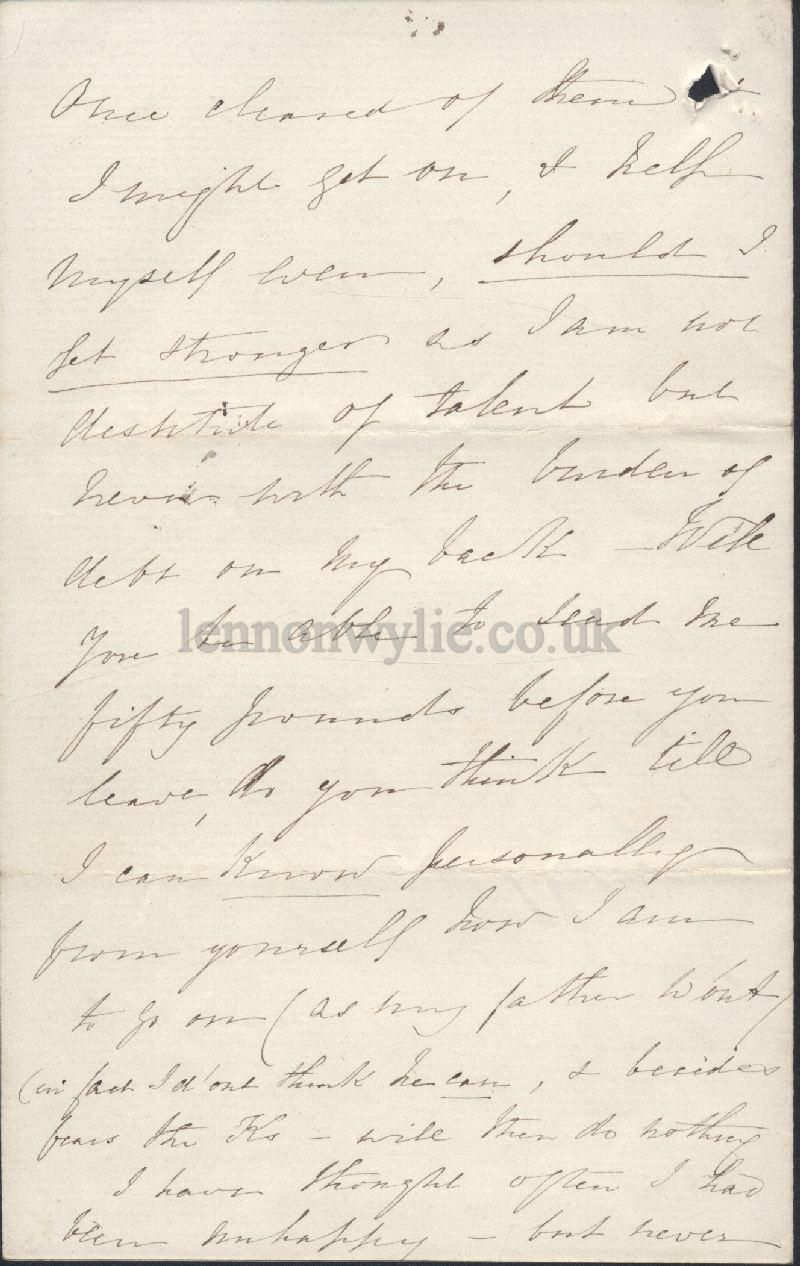 Once cleared of them
I might get on, & help
myself even, should I
get stronger as I am not
destitute of talent but
never with the burden of
debt on my back – Will
you be able to send me
lennonwylie.co.uk
fifty pounds before you
leave, do you think till
I can know personally
from yourself how I am
to go on (as my father won't)
(in fact I d'ont think he can, & besides
fears the Ks – will then do nothing
I have thought often I had
been unhappy – but never